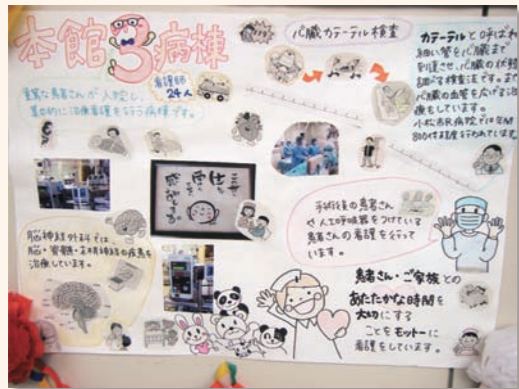 本館3病棟
重篤な患者さんが入院し、
集中的に治療看護を行う病棟です。
看護師
24人
心臓カテーテル検査
カテーテルと呼ばれ
細い管を心臓まで
到達させ、心臓の状態
調べる検査法です。また
心臓の血管を広げる治
療をしています。
小松市民病院では年間
800件程度行われています
感謝する。
脳神経外科では、
脳・脊髄・末梢神経の疾患を
治療しています。
手術後の患者さん
や人工呼吸器をつけている
患者さんの看護を行って
います。
患者さん・ご家族との
あたたかな時間を
大切にする
ことをモットーに
看護をしています。